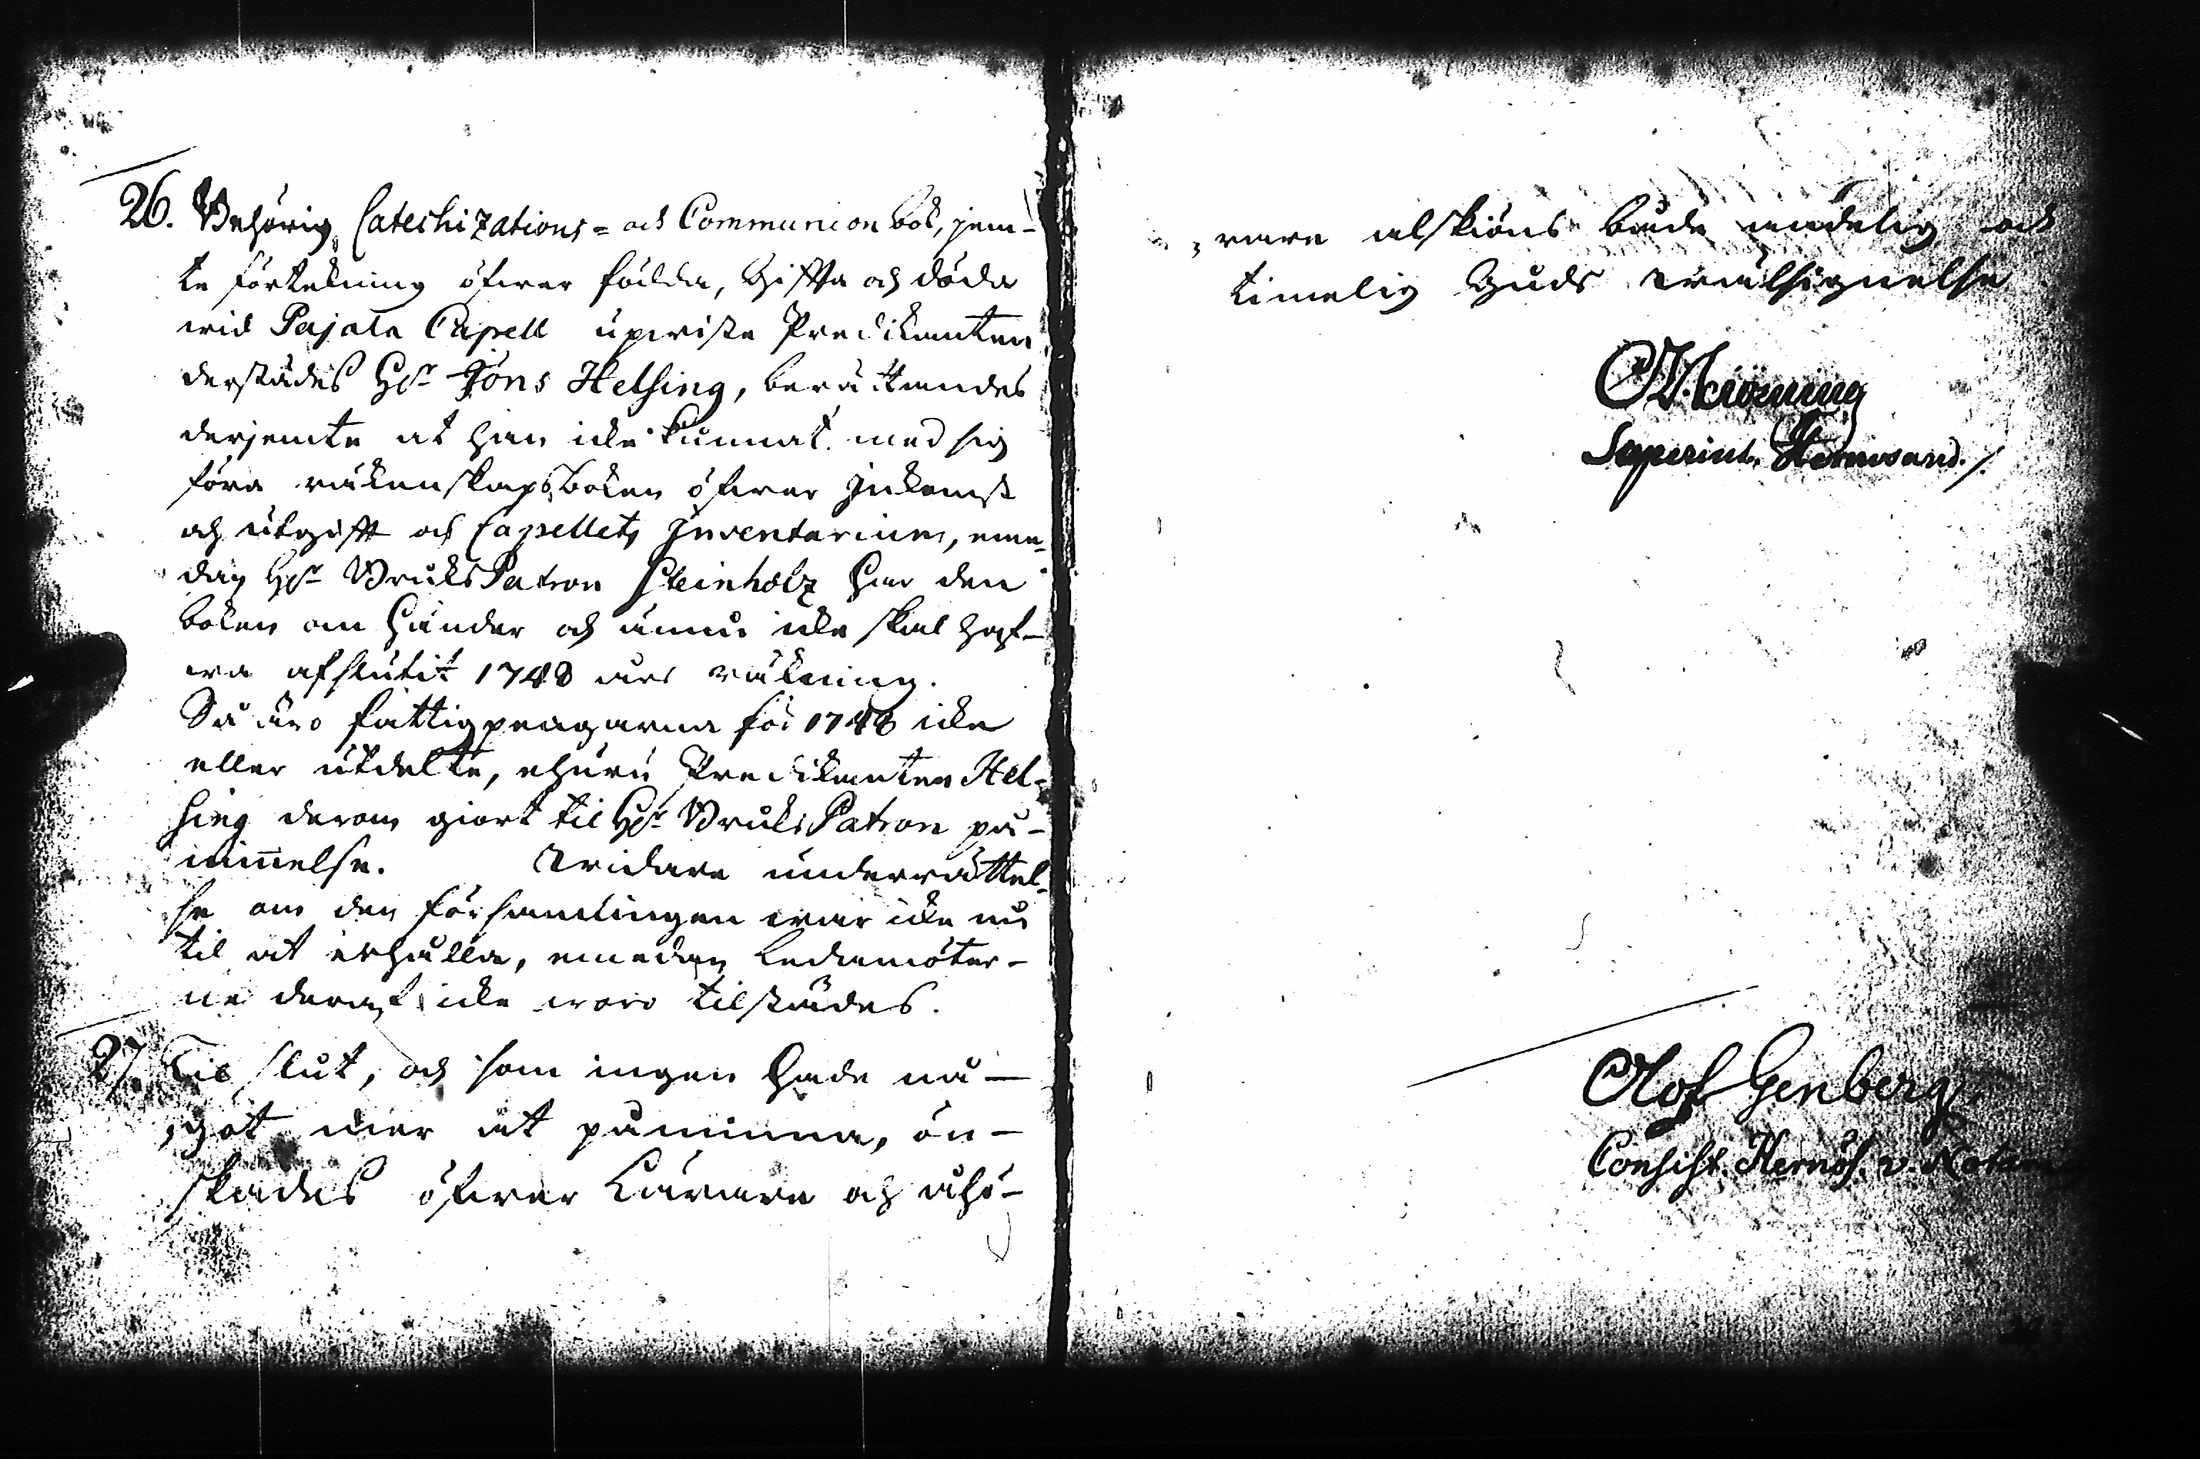 26. Behörig Catechizations= och Communion bok, jem-
te förtekning öfwer födda, Gifta och döda
wid Pajala Capell upwiste Predikanten
derstädes Hr Jöns Helsing, berättandes
derjemte at han icke kunnat med sig
föra räkenskapsboken öfwer Inkomst
och utgift och Capellets Inventarium, eme-
dan Hr BruksPatron Steinholz har den
boken om händer och ännu icke skal haf-
wa afslutit 1748 års räkning.
Så äro fattigpengarna för 1748 icke
eller utdelte, ehuru Predikanten Hel-
sing derom giort til Hr BruksPatron på-
minnelse. Widare underrättel-
se om den församlingen war icke nu
til at erhålla, emedan Ledamöter-
ne deraf icke woro tilstädes.
27. Til slut, och som ingen hade nå-
got mer at påminna, ön-
skades öfwer Lärare och åhö-
rare alskiöns både andelig och
timelig Guds wälsignelse
Superint. Hernosand.
Olof Genberg
Consist. Hernös. v. Notar